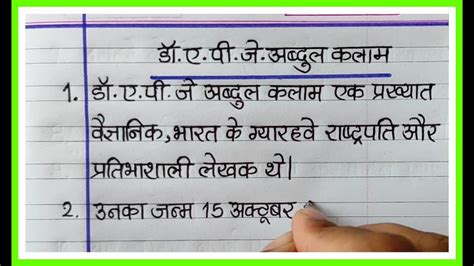 डॉ.ए.पी.जे.अब्दुल कलाम
1. डॉ.ए.पी.जे अब्दुल कलाम एक प्रख्यात
वैज्ञानिक,भारत के ग्यारहवे राष्ट्रपति और
प्रतिभाशाली लेखक थे|
2. उनका जन्म 15 अक्टूबर